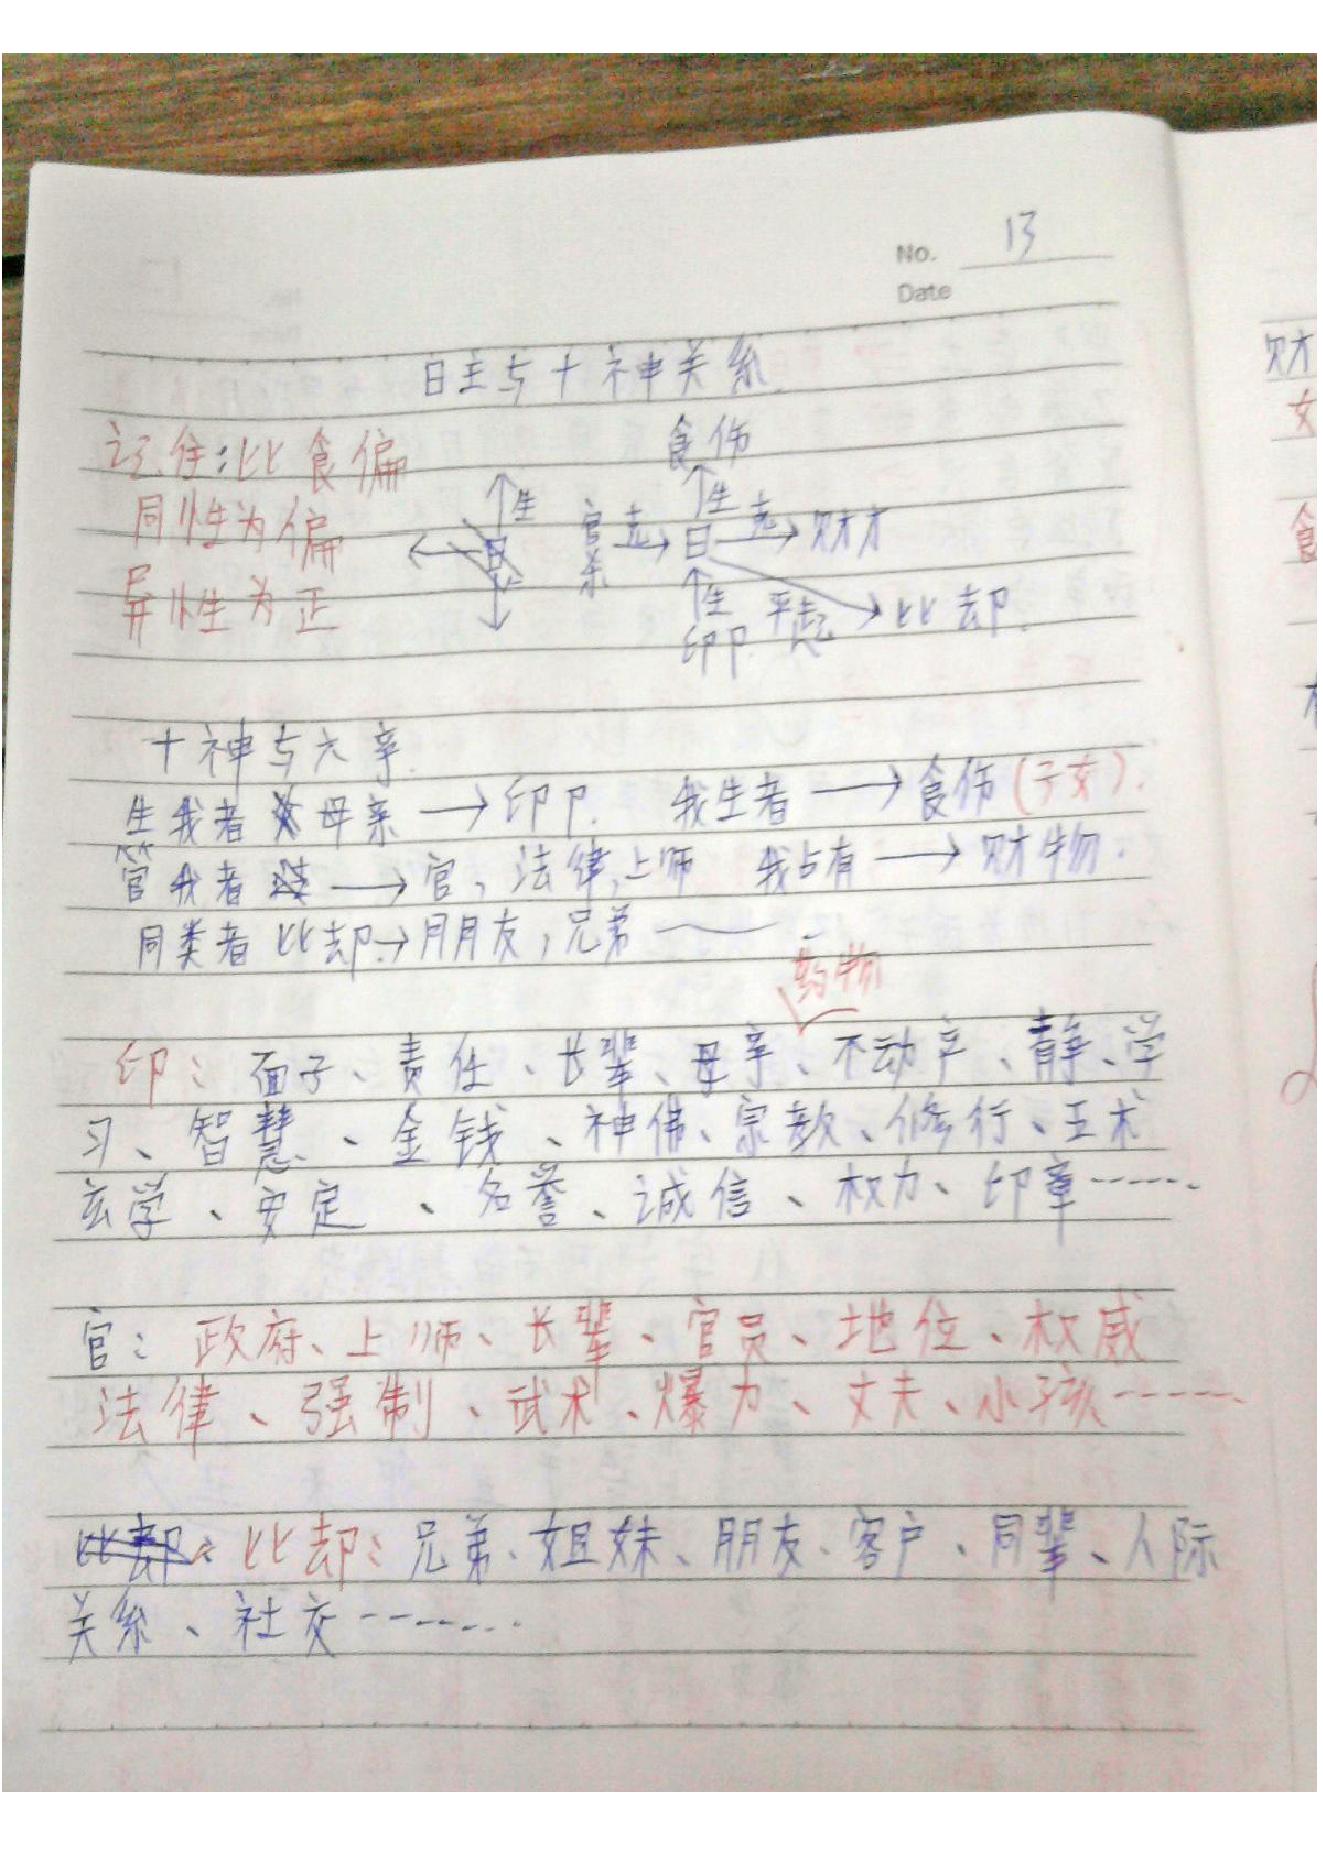 No. 13
Date
日主与十神关系
记住:比食偏
食伤
同性为偏
生
官杀 克 日 克 财才
异性为正
生 平起 比却
印卩
十神与六亲
生我者 母亲 → 印卩. 我生者 → 食伤(子女).
管我者 → 官,法律,上师 我占有 → 财物.
同类者 比却→朋友,兄弟
药物
印: 面子、责任、长辈、母亲、不动产、静、学
习、智慧、金钱、神佛、宗教、修行、五术
玄学、安定、名誉、诚信、权力、印章------
官: 政府、上师、长辈、官员、地位、权威
法律、强制、武术、爆力、丈夫、小孩------
比却: 比却: 兄弟、姐妹、朋友、客户、同辈、人际
关系、社交------
财
女
食